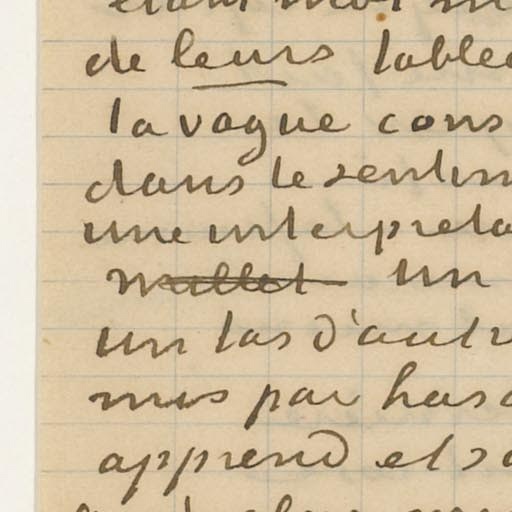 de leurs table
la vague cons
dans le sentim
une interpreta
millet un
un tas d'autr
mis par hasa
apprend et s